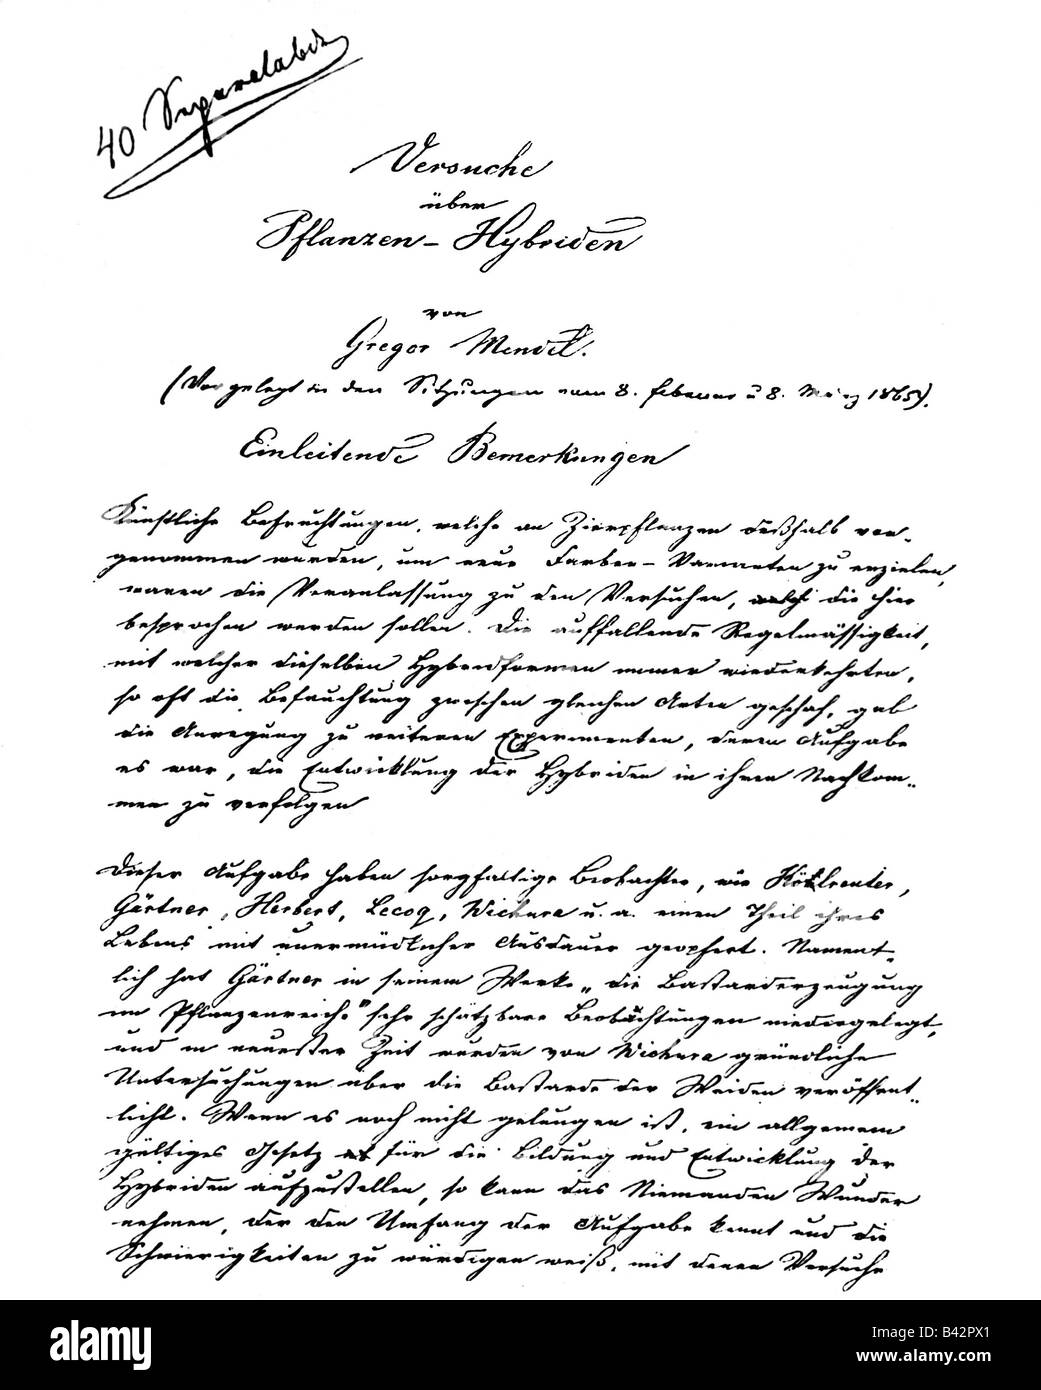 40 Separatabdr
Versuche
über
Pflanzen-Hybriden
von
Gregor Mendel.
(Vorgelegt in den Sitzungen vom 8. Februar u 8. März 1865).
Einleitende Bemerkungen
Künstliche Befruchtungen, welche an Zierpflanzen deßhalb vor-
genommen wurden, um neue Farben-Varianten zu erzielen,
waren die Veranlassung zu den Versuchen, die hier
besprochen werden sollen. Die auffallende Regelmässigkeit,
mit welcher dieselben Hybridformen immer wiederkehrten,
so oft die Befruchtung zwischen gleichen Arten geschah, gab
die Anregung zu weiteren Experimenten, deren Aufgabe
es war, die Entwicklung der Hybriden in ihren Nachkom-
men zu verfolgen
Dieser Aufgabe haben sorgfältige Beobachter, wie Kölreuter,
Gärtner, Herbert, Lecoq, Wichura u. a. einen Theil ihres
Lebens mit unermüdlicher Ausdauer geopfert. Nament-
lich hat Gärtner in seinem Werke „die Bastarderzeugung
im Pflanzenreiche" sehr schätzbare Beobachtungen niedergelegt,
und in neuester Zeit wurden von Wichura gründliche
Untersuchungen über die Bastarde der Weiden veröffent-
licht. Wenn es noch nicht gelungen ist, ein allgemein
gültiges Gesetz für die Bildung und Entwicklung der
Hybriden aufzustellen, so kann das Niemanden Wunder
nehmen, der den Umfang der Aufgabe kennt und die
Schwierigkeiten zu würdigen weiß, mit denen Versuche
alamy
Image ID: B42PX1
www.alamy.com
alamy stock photo